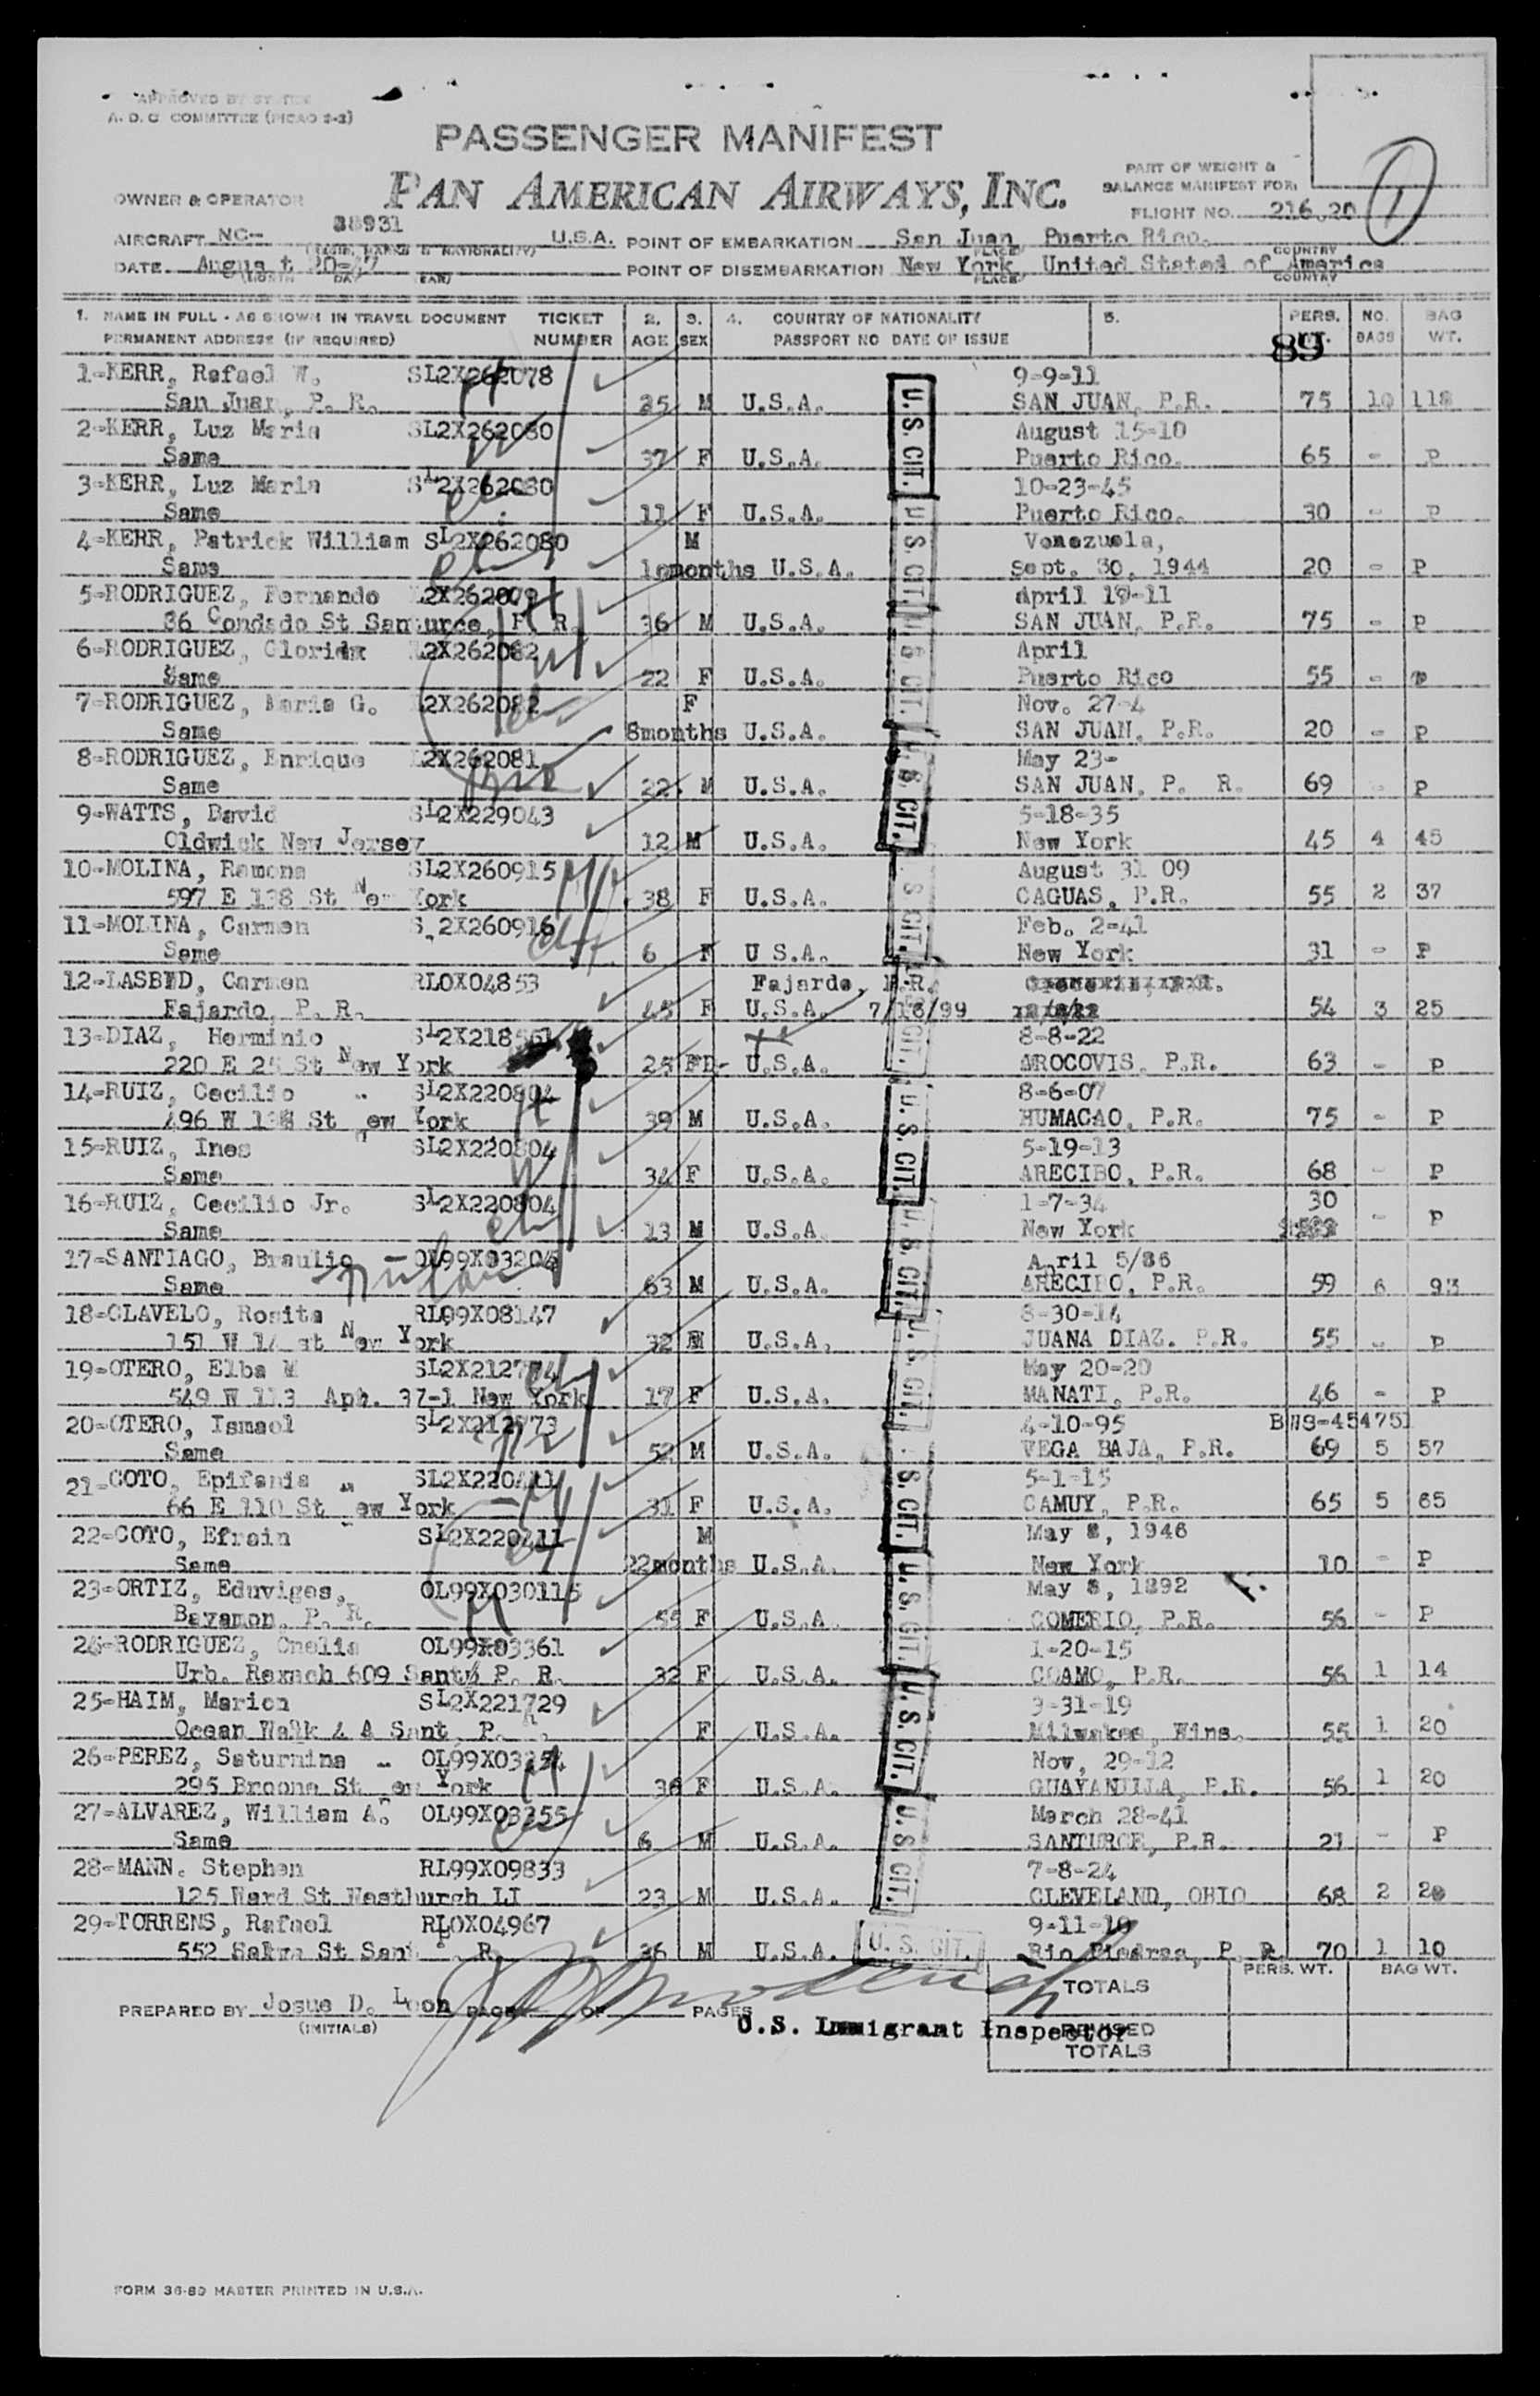 APPROVED BY
A. D. C COMMITTEE (PICAO 2-2)
PASSENGER MANIFEST
PAN AMERICAN AIRWAYS, INC.
PART OF WEIGHT &
BALANCE MANIFEST FOR
OWNER & OPERATOR
FLIGHT NO. 216.20
1
AIRCRAFT NC- 88931 U.S.A. POINT OF EMBARKATION San Juan Puerto Rico.
PLACE COUNTRY
DATE August 20-47 POINT OF DISEMBARKATION New York, United States of America
PLACE COUNTRY
1. NAME IN FULL - AS SHOWN IN TRAVEL DOCUMENT TICKET 2. 3. 4. COUNTRY OF NATIONALITY 5. PERS. NO. BAG
PERMANENT ADDRESS (IF REQUIRED) NUMBER AGE SEX PASSPORT NO DATE OF ISSUE WT. BAGS WT.
89
1-KERR, Rafael W. SL2X262078 9-9-11
San Juan, P. R. 35 M U.S.A. SAN JUAN, P.R. 75 10 118
2-KERR, Luz Maria SL2X262080 August 15-10
Same 37 F U.S.A. Puerto Rico. 65 - P
3-KERR, Luz Maria SL2X262080 10-23-45
Same 11 F U.S.A. Puerto Rico. 30 - P
4-KERR, Patrick William SL2X262080 M Venezuela,
Same months U.S.A. Sept. 30, 1944 20 - P
5-RODRIGUEZ, Fernando L2X262079 April 19-11
36 Condado St Santurce, P. R. 36 M U.S.A. SAN JUAN, P.R. 75 - P
6-RODRIGUEZ, L2X262082 April
Same 22 F U.S.A. Puerto Rico 55 - P
7-RODRIGUEZ, Maria G. L2X262082 F Nov. 27-4
Same 8months U.S.A. SAN JUAN, P.R. 20 - P
8-RODRIGUEZ, Enrique L2X262081 May 23-
Same 22. M U.S.A. SAN JUAN, P. R. 69 - P
9-WATTS, David SL2X229043 5-18-35
Oldwick New Jersey 12 M U.S.A. New York 45 4 45
10-MOLINA, Ramona SL2X260915 August 31 09
597 E 138 St New York 38 F U.S.A. CAGUAS, P.R. 55 2 37
11-MOLINA, Carmen S 2X260916 Feb. 2-41
Same 6 F U S.A. New York 31 - P
12- Carmen RLOX04853 Fajardo, P.R.
Fajardo, P. R. 45 F U.S.A. 7/16/99 54 3 25
13-DIAZ, Herminio SL2X218561 8-8-22
220 E 25 St New York 25 U.S.A. OROCOVIS, P.R. 63 - P
14-RUIZ, Cecilio SL2X220804 8-6-07
496 W St ew York 39 M U.S.A. HUMACAO, P.R. 75 - P
15-RUIZ, Ines SL2X220804 5-19-13
Same 34 F U.S.A. ARECIBO, P.R. 68 - P
16-RUIZ, Cecilio Jr. SL2X220804 1-7-34 30
Same 13 M U.S.A New York - P
17-SANTIAGO, Braulio OL99X03204 April 5/86
Same 63 M U.S.A. ARECIBO, P.R. 59 6 93
18-CLAVELO, Rosita RL99X08147 8-30-14
151 W 14 st New York 32 U.S.A. JUANA DIAZ. P.R. 55 - P
19-OTERO, Elba M SL2X212774 May 20-20
549 W 113 Aph. 37-1 New York 17 F U.S.A. MANATI, P.R. 46 - P
20-OTERO, Ismael SL2X212773 4-10-95 BWS-454751
Same 52 M U.S.A. VEGA BAJA, P.R. 69 5 57
21-COTO, Epifania SL2X220411 5-1-15
66 E 110 St ew York 31 F U.S.A. CAMUY, P.R. 65 5 65
22-COTO, Efrain SL2X220411 M May 8, 1946
Same 22months U.S.A. New York 10 - P
23-ORTIZ, Eduviges, OL99X030115 May 8, 1892
Bayamon, P. R. 55 F U.S.A COMERIO, P.R. 56 - P
24-RODRIGUEZ, Onelia OL99X03361 1-20-15
Urb. Rexach 609 Sant P. R. 32 F U.S.A. COAMO, P.R. 56 1 14
25-HAIM, Marion SL2X221729 3-31-19
Ocean Walk 4 A Sant P. F U.S.A. Milwakee, Wins. 55 1 20
26-PEREZ, Saturnina OL99X03254 Nov, 29-12
295 Broome St ew York 36 F U.S.A. GUAYANILLA, P.R. 56 1 20
27-ALVAREZ, William A. OL99X03255 March 28-41
Same 6 M U.S.A. SANTURCE, P.R. 21 - P
28-MANN. Stephen RL99X09833 7-8-24
125 Ward St Westhurgh LI 23 M U.S.A. CLEVELAND, OHIO 68 2 20
29-TORRENS, Rafael RLOX04967 9-11-10
552 St Sant P. R. 36 M U.S.A. Rio Piedras, P. R. 70 1 10
U. S. CIT.
U. S. CIT.
U. S. CIT.
U. S. CIT.
U. S. CIT.
U. S. CIT.
U. S. CIT.
U. S. CIT.
U. S. CIT.
U. S. CIT.
U. S. CIT.
U. S. CIT.
U. S. CIT.
U. S. CIT.
PERS. WT. BAG WT.
TOTALS
PREPARED BY Josue D. Leon PAGE OF PAGES
(INITIALS)
U.S. Immigrant Inspector
REVISED
TOTALS
FORM 36-89 MASTER PRINTED IN U.S.A.